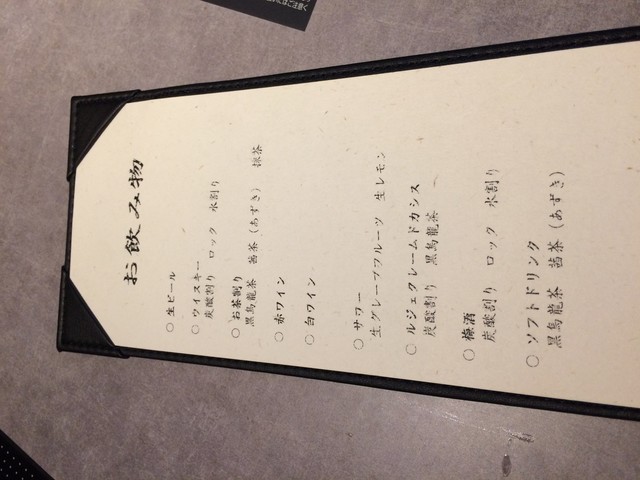 お飲み物
○ 生ビール
○ ウイスキー
炭酸割り ロック 水割り
○ お茶割り
黒烏龍茶 茜茶(あずき) 抹茶
○ 赤ワイン
○ 白ワイン
○ サワー
生グレープフルーツ 生レモン
○ ルジェクレームドカシス
炭酸割り 黒烏龍茶
○ 梅酒
炭酸割り ロック 水割り
○ ソフトドリンク
黒烏龍茶 茜茶(あずき)